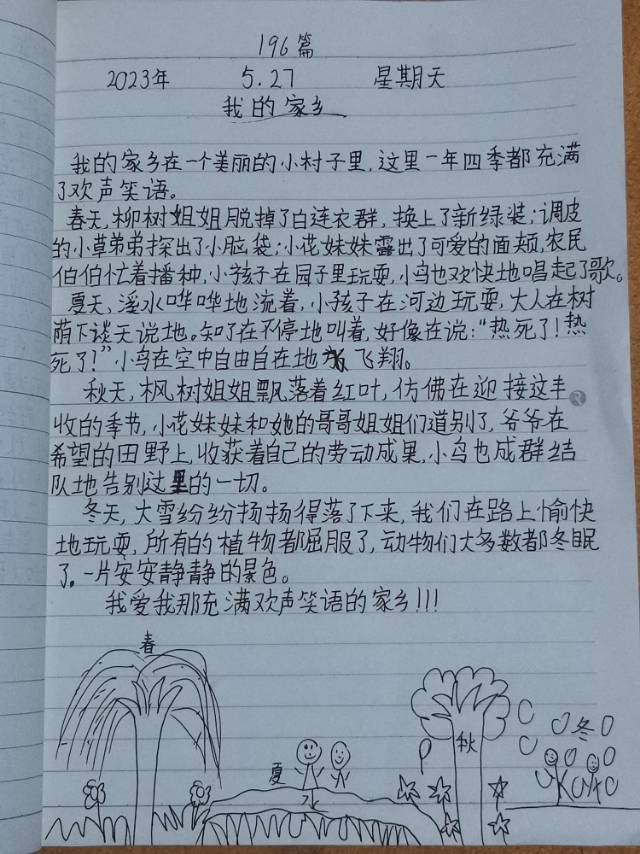 196篇
2023年 5.27 星期天
我的家乡
我的家乡在一个美丽的小村子里,这里一年四季都充满
了欢声笑语。
春天,柳树姐姐脱掉了白连衣群,换上了新绿装;调皮
的小草弟弟探出了小脑袋;小花妹妹露出了可爱的面颊,农民
伯伯忙着播种,小孩子在园子里玩耍,小鸟也欢快地唱起了歌。
夏天、溪水哗哗地流着,小孩子在河边玩耍,大人在树
荫下谈天说地。知了在不停地叫着,好像在说:“热死了!热
死了!”小鸟在空中自由自在地飞翔。
秋天,枫树姐姐飘落着红叶,仿佛在迎接这丰
收的季节,小花妹妹和她的哥哥姐姐们道别了,爷爷在
希望的田野上,收获着自己的劳动成果,小鸟也成群结
队地告别这里的一切。
冬天,大雪纷纷扬扬得落了下来,我们在路上愉快
地玩耍,所有的植物都屈服了,动物们大多数都冬眠
了。一片安安静静的景色。
我爱我那充满欢声笑语的家乡!!!
春
夏
秋
冬